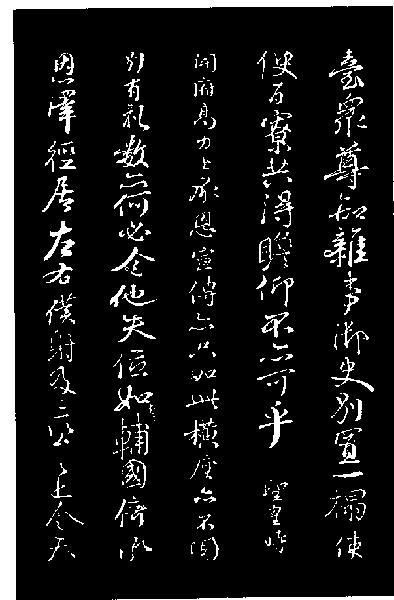 臺眾尊知雜事御史別置一榻使
使百寮共得瞻仰不亦可乎 聖皇時
開府高力士承恩宣傳亦只如此橫座亦不聞
別有礼數亦何必令他失位如輔國倚承
恩澤徑居左右僕射及三公之上令天